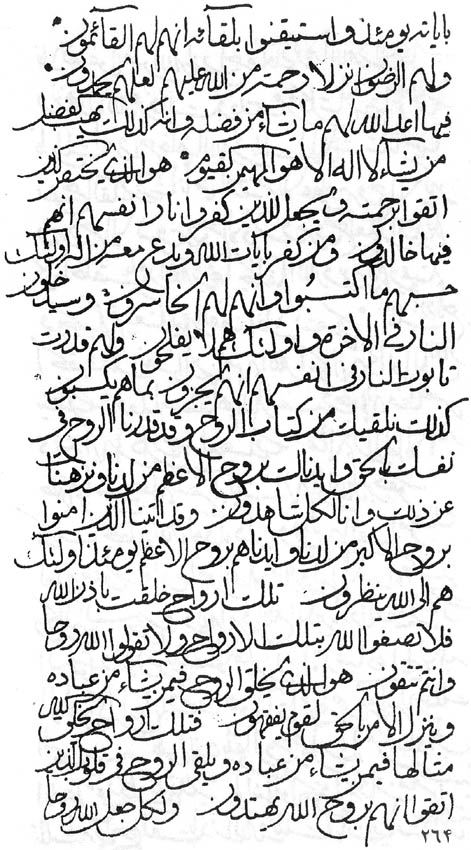 باياته يومئذ واستيقنوا بلقائه انهم لهم القائمون
ولهم الرضوان نزلا رحمة من الله عليهم لعلهم يحمدون
فيها اعد الله لهم ما يشاء من فضله وانه كذلك يهب الفضل
من يشاء لا اله الا هو المهيمن القيوم هو الذي يختص الذين
اتقوا برحمته ويجعل للذين كفروا نارا انفسهم انهم
فيها خالدون ومن كفر بايات الله ويدع معه من اله اولئك
حسبهم ما اكتسبوا وانهم لهم الخاسرون وسيدخلون
النار في الاخرة واولئك هم لا يفلحون ولهم قدرت
تابوت النار في انفسهم انهم يجزون بما هم يكسبون
كذلك نلقيك من كتاب الروح وقد قدرنا الروح في
نفسك بالحق وايدناك بروح الاعظم من لدنا ونزهناك
عن ذلك وانا لكل شاهدون وقد ايدنا الذين امنوا
بروح الاكبر من لدنا وايدناهم بروح الاعظم يومئذ اولئك
هم الى الله ينظرون تلك ارواح خلقت باذن الله
فلا تصفوا الله بتلك الارواح ولا تقولوا الله روحا
وانتم تتقون هو الذي يخلق الروح فيمن يشاء من عباده
وينزل الامر بالحق لقوم يفقهون فتلك ارواح يخلق الله
مثالها فيمن يشاء من عباده ويلقي الروح في قلوب الذين
اتقوا انهم بروح الله يهتدون ولكل جعل الله روحا
٢٦۴